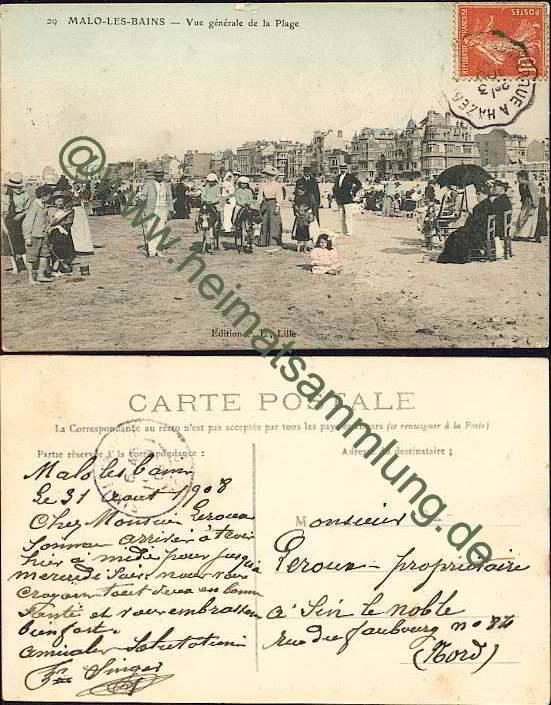 29 MALO-LES-BAINS — Vue générale de la Plage
POSTES
REPUBLIQUE FRANÇAISE
10
Edition L. Lille
@www.heimatsammlung.de
CARTE POSTALE
La Correspondance au recto n'est pas acceptée par tous les pays étrangers (se renseigner à la Poste)
Partie réservée à la correspondance
Adresse du destinataire ;
Malo les bains
Le 31 aout 1908
Cher Monsieur Peroux
sommes arrivés à
hier à midi pour jusqu'à
mercredi soir nous vous
croyons tout deux en bonne
santé et vous embrassons
bien fort.
amicales Salutations
Singer
Monsieur
Peroux - propriétaire
à Sin le noble
rue du faubourg no 82
(Nord)